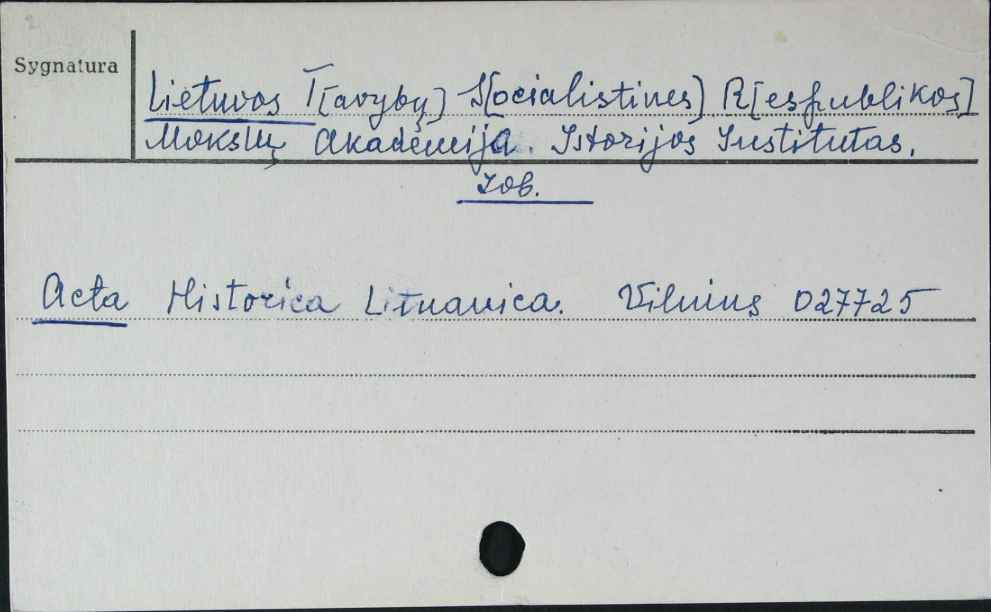 Sygnatura
Lietuvos T[arybų] S[ocialistines] R[espublikos]
Mokslų Akademija. Istorijos Institutas.
zob.
Acta Historica Lituanica. Vilnius 027725